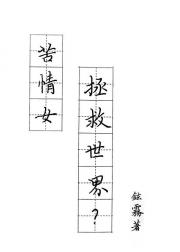 苦情女
拯救世界?
霧著